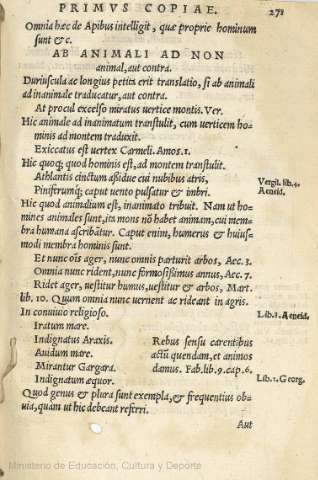 PRIMVS COPIAE. 271
Omnia hæc de Apibus intelligit, quæ proprie hominum
sunt & c.
AB ANIMALI AD NON
animal, aut contra.
Duriuscula ac longius petita erit translatio, si ab animali
ad inanimale traducatur, aut contra.
At procul excelso miratus vertice montis. Ver.
Hic animale ad inanimatum transtulit, cum verticem ho-
minis ad montem traduxit.
Exiccatus est vertex Carmeli. Amos. 1.
Hic quoq; quod hominis est, ad montem transtulit.
Athlantis cinctum assidue cui nubibus atris,
Piniferumq; caput uento pulsatur & imbri.
Vergil. lib. 4.
Aeneid.
Hic quod animalium est, inanimato tribuit. Nam ut ho-
mines animales sunt, ita mons nō habet animam, cui mem-
bra humana ascribātur. Caput enim, humerus & huius-
modi membra hominis sunt.
Et nunc oīs ager, nunc omnis parturit arbos, Aec. 3.
Omnia nunc rident, nunc formosissimus annus, Aec. 7.
Ridet ager, uestitur humus, uestitur & arbos, Mart.
lib. 10. Quum omnia nunc uernent ac rideant in agris.
In conuiuio religioso.
Lib. 1. Aeneid.
Iratum mare.
Indignatus Araxis. Rebus sensu carentibus
Auidum mare. actū quendam, et animos
Mirantur Gargara. damus. Fab. lib. 9. cap. 6.
Indignatum æquor.
Lib. 1. Georg.
Quod genus & plura sunt exempla, & frequentius ob-
uia, quam ut hic debeant referri.
Aut
Ministerio de Educación, Cultura y Deporte